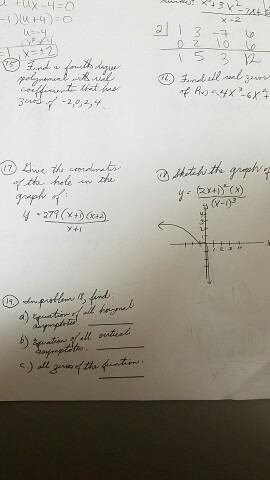 u + 4x - 4 = 0
-1)(u+4) = 0
u = -4
x² ≠ 4
=1 x = ±2
x³ + 3x² - 7x + 6
x - 2
2| 1 3 -7 6
0 2 10 6
1 5 3 12
15) Find a fourth degree
polynomial with real
coefficients that has
zeros of -2, 0, 2, 4
16) Find all real zeros
of P(x) = 4x³ - 6x²+
17) Give the coordinates
of the hole in the
graph of:
y = 279(x+1)(x+2)
x+1
18) Sketch the graph of
y = (2x+1)²(x)
(x-1)³
y
19) In problem 18, find:
a) Equation of all horizonal
asymptotes.
b) Equation of all vertical
asymptotes.
c.) all zeros of the function.